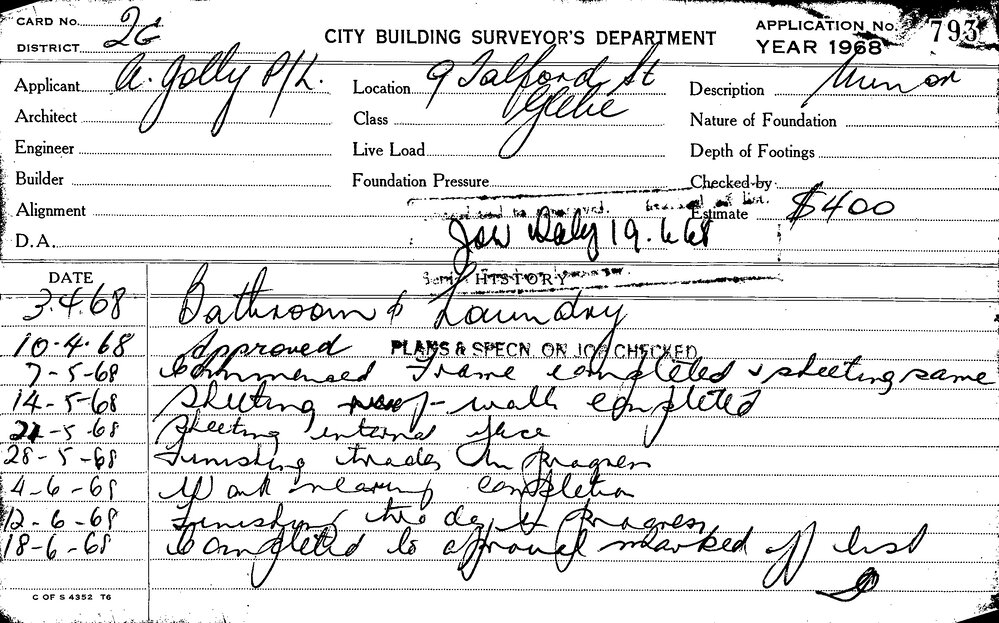 CARD No.
DISTRICT 26
CITY BUILDING SURVEYOR'S DEPARTMENT
APPLICATION No. 793
YEAR 1968
Applicant A. Jolly P/L.
Location 9 Talford St Glebe
Description Minor
Architect
Class
Nature of Foundation
Engineer
Live Load
Depth of Footings
Builder
Foundation Pressure
Checked by
Alignment
Estimate $400
D.A.
19.6.68
DATE
HISTORY
3.4.68 Bathroom & Laundry
10-4-68 Approved PLANS & SPECN. ON JOB CHECKED
7-5-68 Commenced Frame completed & sheeting same
14-5-68 Sheeting roof - walls completed
21-5-68 Sheeting internal face
28-5-68 Finishing trades in progress
4-6-68 Work nearing completion
12-6-68 Finishing trades in progress
18-6-68 Completed to approval marked off list
C OF S 4352 T6